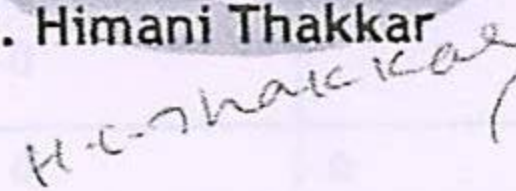 . Himani Thakkar
H.C.Thakkar